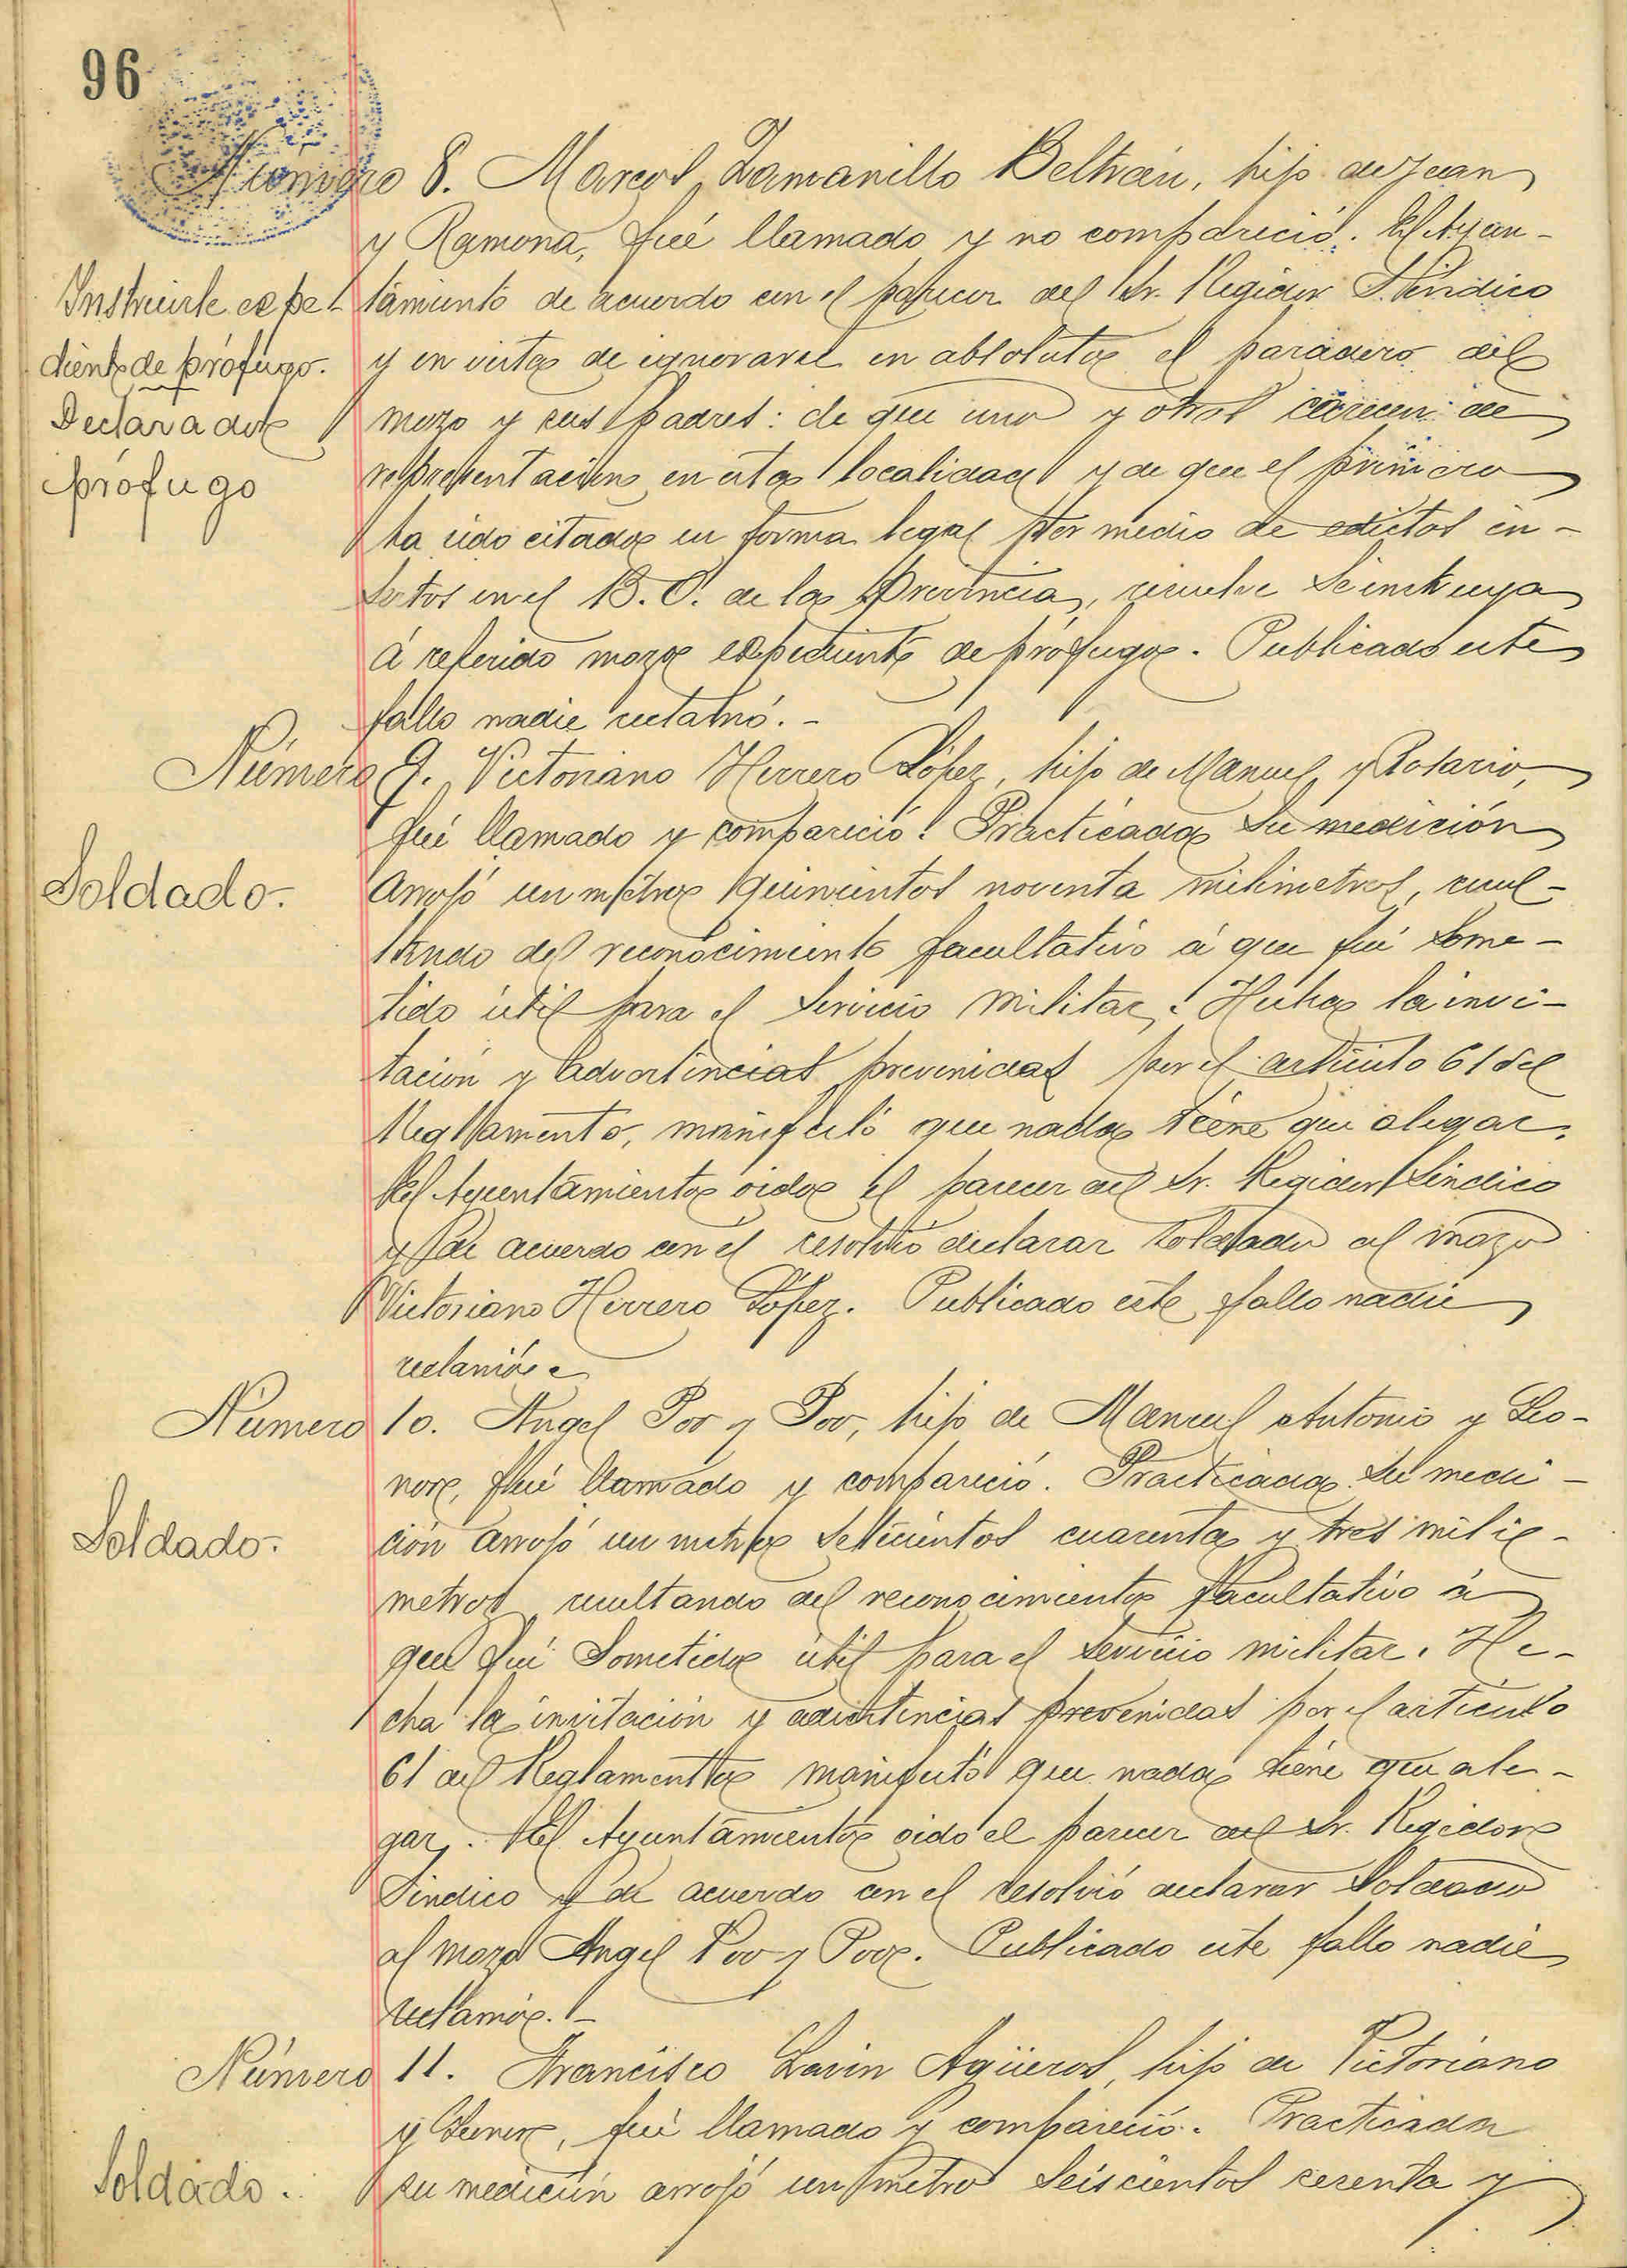 96
Número 8. Marcos Zamanillo Beltrán, hijo de Juan
y Ramona, fué llamado y no compareció. El Ayun-
Instruirle expe-
tamiento de acuerdo con el parecer del Sr. Regidor Síndico
diente de prófugo.
y en vista de ignorarse en absoluto el paradero del
Declarado
mozo y sus padres: de que uno y otros carecen de
prófugo
representación en esta localidad y de que el primero
ha sido citado en forma legal por medio de edictos in-
sertos en el B. O. de la provincia, resuelve se instruya
á referido mozo expediente de prófugo. Publicado este
fallo nadie reclamó.-
Número 9. Victoriano Herrero López, hijo de Manuel y Rosario,
fué llamado y compareció. Practicada su medición
Soldado.-
arrojó un metro quinientos noventa milimetros, resul-
tando del reconocimiento facultativo á que fué some-
tido útil para el servicio militar. Hecha la invi-
tación y advertencias prevenidas por el artículo 61 del
Reglamento, manifestó que nada tiene que alegar.
El Ayuntamiento oido el parecer del Sr. Regidor Síndico
y de acuerdo con él resolvió declarar soldado al mozo
Victoriano Herrero López. Publicado este fallo nadie
reclamó.-
Número 10. Angel Poo y Poo, hijo de Manuel Antonio y Leo-
nor, fué llamado y compareció. Practicada su medi-
Soldado.-
ción arrojó un metro setecientos cuarenta y tres milí-
metros resultando del reconocimiento facultativo á
que fué sometido útil para el servicio militar. He-
cha la invitación y advertencias prevenidas por el artículo
61 del Reglamento manifestó que nada tiene que ale-
gar. El Ayuntamiento oido el parecer del Sr. Regidor
Síndico y de acuerdo con el resolvió declarar Soldado
al mozo Angel Poo y Poo. Publicado este fallo nadie
reclamó.-
Número 11. Francisco Lavin Agüeros, hijo de Victoriano
y, fué llamado y compareció. Practicada
Soldado.
su medición arrojó un metro seiscientos sesenta y